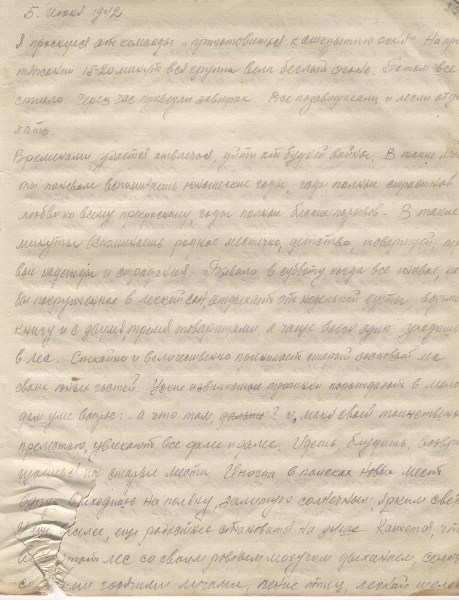 5. Июня 1942
Я проснулся от команды "приготовиться к открытию огня". На про
тяжении 15-20 минут вся группа вела беглый огонь. Потом все
стихло. Через час привезли завтрак. Все позавтракали и легли отды
хать.
Временами удается отвлечься, уйти от будней войны. В такие мину
ты поневоле вспоминаешь юношеские годы, годы полные страстной
любви ко всему прекрасному, годы полные порывов. В такие
минуты вспоминаешь родное местечко, детство, товарищей,
надежды и стремления. Бывало в субботу когда все живое, как
бы погруженное в легкий сон отдыхает от недельной суеты, возьмешь
книгу и с двумя, тремя товарищами, а чаще всего один уходишь
в лес. Спокойно и величественно принимает старый сосновый лес
своих юных гостей. Узкие извилистые тропинки порождают в моло
дом уме вопрос: а что там дальше? и, маня своей таинственной
прелестью, увлекают все далее и далее. Идешь, блудишь, возвра
щаешься на старые места. Иногда в поисках новых мест
выходишь на поляну, залитую солнечным, ярким светом
еще радостнее становится на душе. Кажется, что
этот лес со своим ровным могучим дыханием, солнце
со горячими лучами, пение птиц, легкий шелест